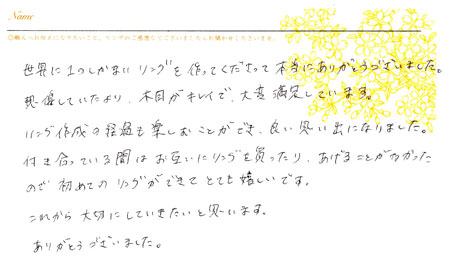 Name
世界に1つしかないリングを作ってくださって本当にありがとうございました。
想像していたより、木目がキレイで、大変満足しています。
リング作成の経過も楽しむことができ、良い思い出になりました。
付き合っている間はお互いにリングを買ったり、あげることがなかった
ので初めてのリングができてとても嬉しいです。
これから大切にしていきたいと思います。
ありがとうございました。